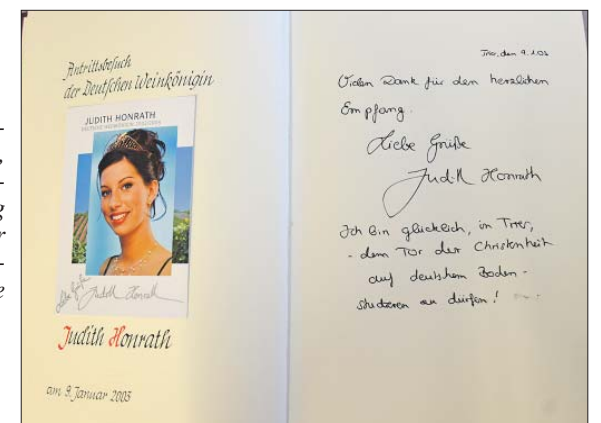 Antrittsbesuch
der Deutschen Weinkönigin
JUDITH HONRATH
DEUTSCHE WEINKÖNIGIN
Liebe Grüße
Judith Honrath
Judith Honrath
am 9. Januar 2003
Trier, den 9.1.03
Vielen Dank für den herzlichen
Empfang.
Liebe Grüße
Judith Honrath
Ich bin glücklich, in Trier,
- dem Tor der Christenheit
auf deutschem Boden -
studieren zu dürfen!